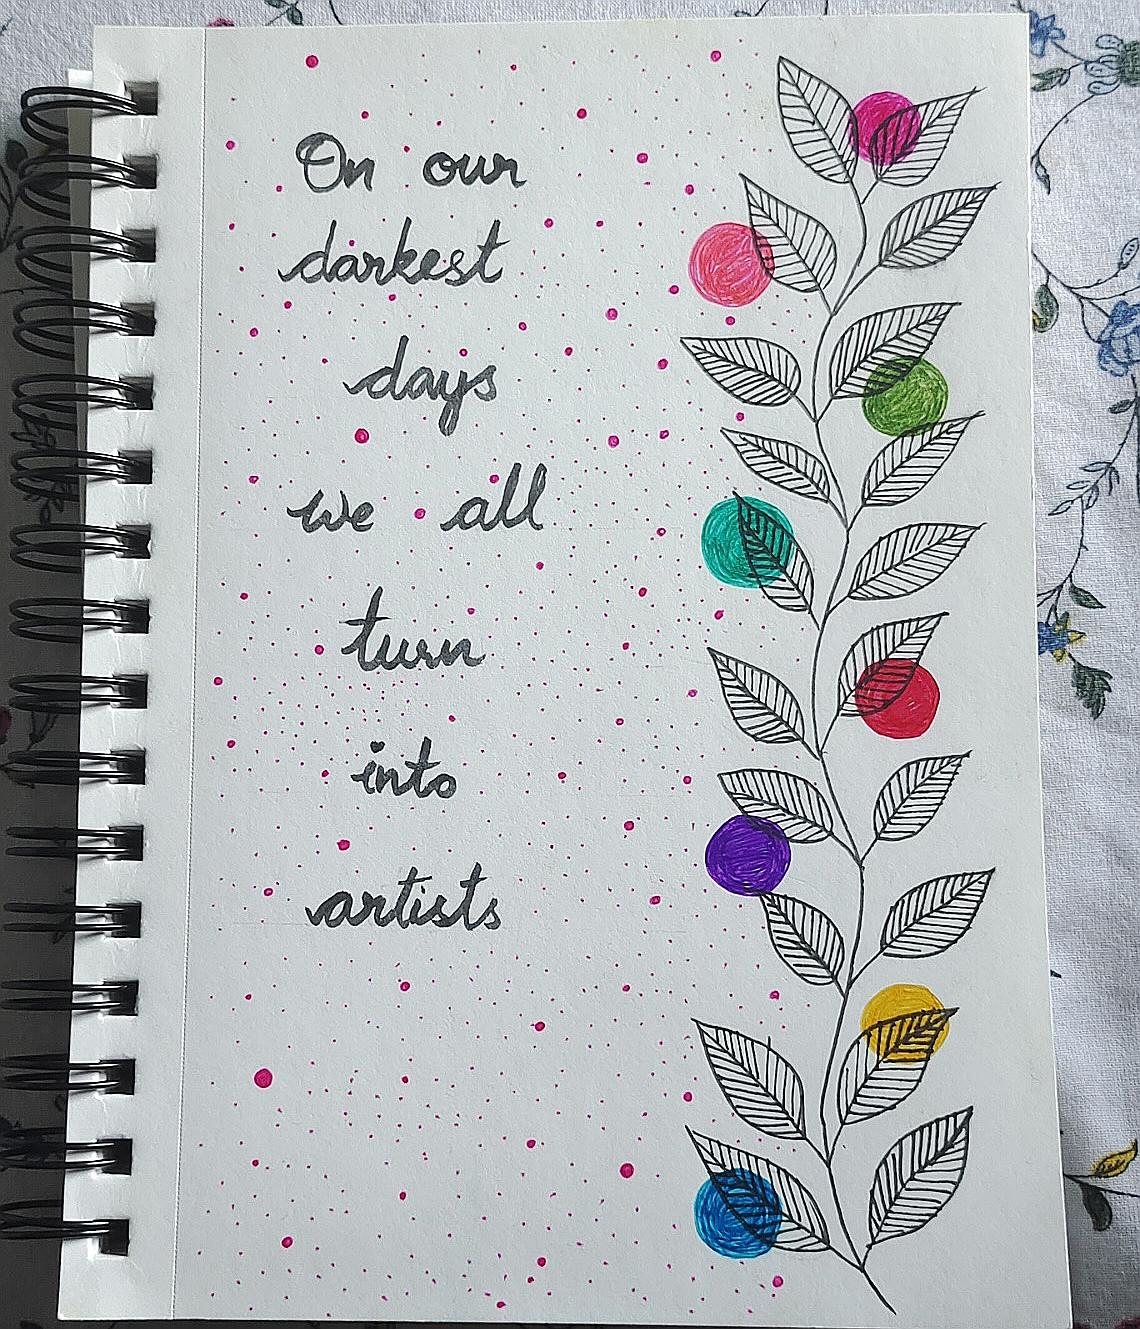 On our
darkest
days
we all
turn
into
artists